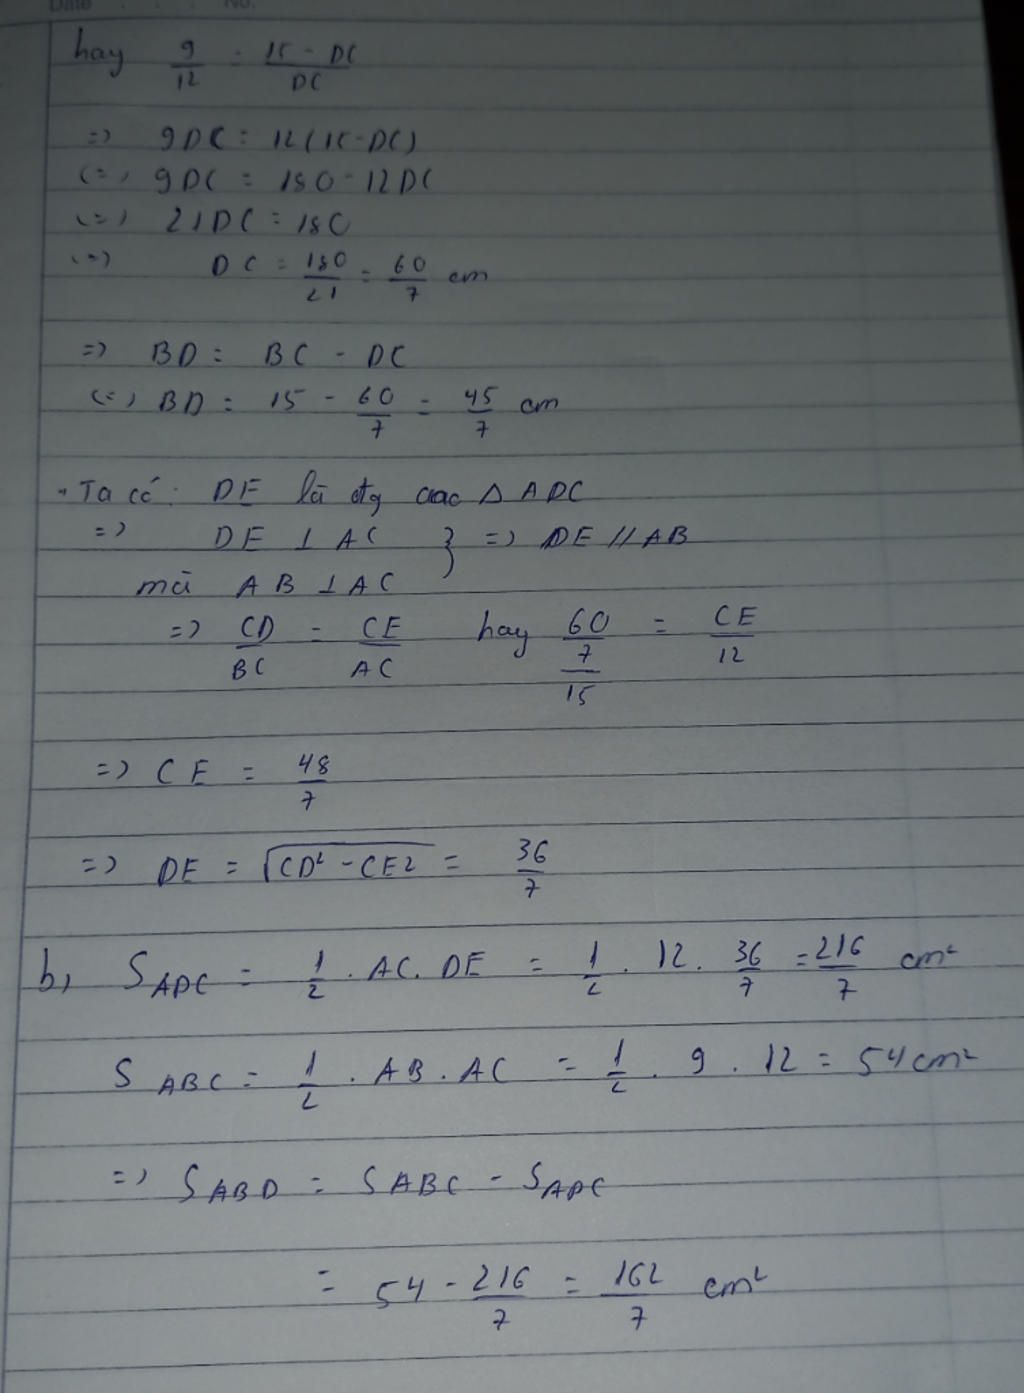 Date . . . No.
hay 9/12 = 15 - DC/DC
=> 9DC = 12(15-DC)
<=> 9DC = 180 - 12DC
<=> 21DC = 180
<=> DC = 180/21 = 60/7 cm
=> BD = BC - DC
<=> BD = 15 - 60/7 = 45/7 cm
Ta có: DE là đg cao △ ADC
=> DE ⊥ AC } => DE // AB
mà AB ⊥ AC
=> CD/BC = CE/AC hay 60/7/15 = CE/12
=> CE = 48/7
=> DE = √CD² - CE2 = 36/7
b, S ADC = 1/2 . AC . DE = 1/2 . 12 . 36/7 = 216/7 cm²
S ABC = 1/2 . AB . AC = 1/2 . 9 . 12 = 54 cm²
=> S ABD = S ABC - S ADC
= 54 - 216/7 = 162/7 cm²